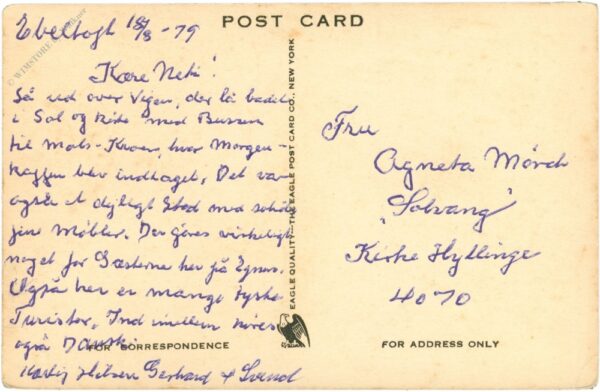 POST CARD
Ebeltoft 18/8 - 79
Kære Neti!
Så ud over Vigen, der lå badet
i Sol og kiste med Bussen
til Mols-Kroen, hvor Morgen-
kaffen blev indtaget. Det var
også et dejligt Sted med
fine Møbler. Der gøres virkeligt
noget for Gæsterne her på Egnen.
Også her er mange tyske
Turister. Ind imellem høres
også Dansk.
Hilsen Gerhard + Svend
FOR CORRESPONDENCE
EAGLE QUALITY—THE EAGLE POST CARD CO., NEW YORK
Fru
Agneta Mörch
"Solvang"
Kirke Hyllinge
4070
FOR ADDRESS ONLY